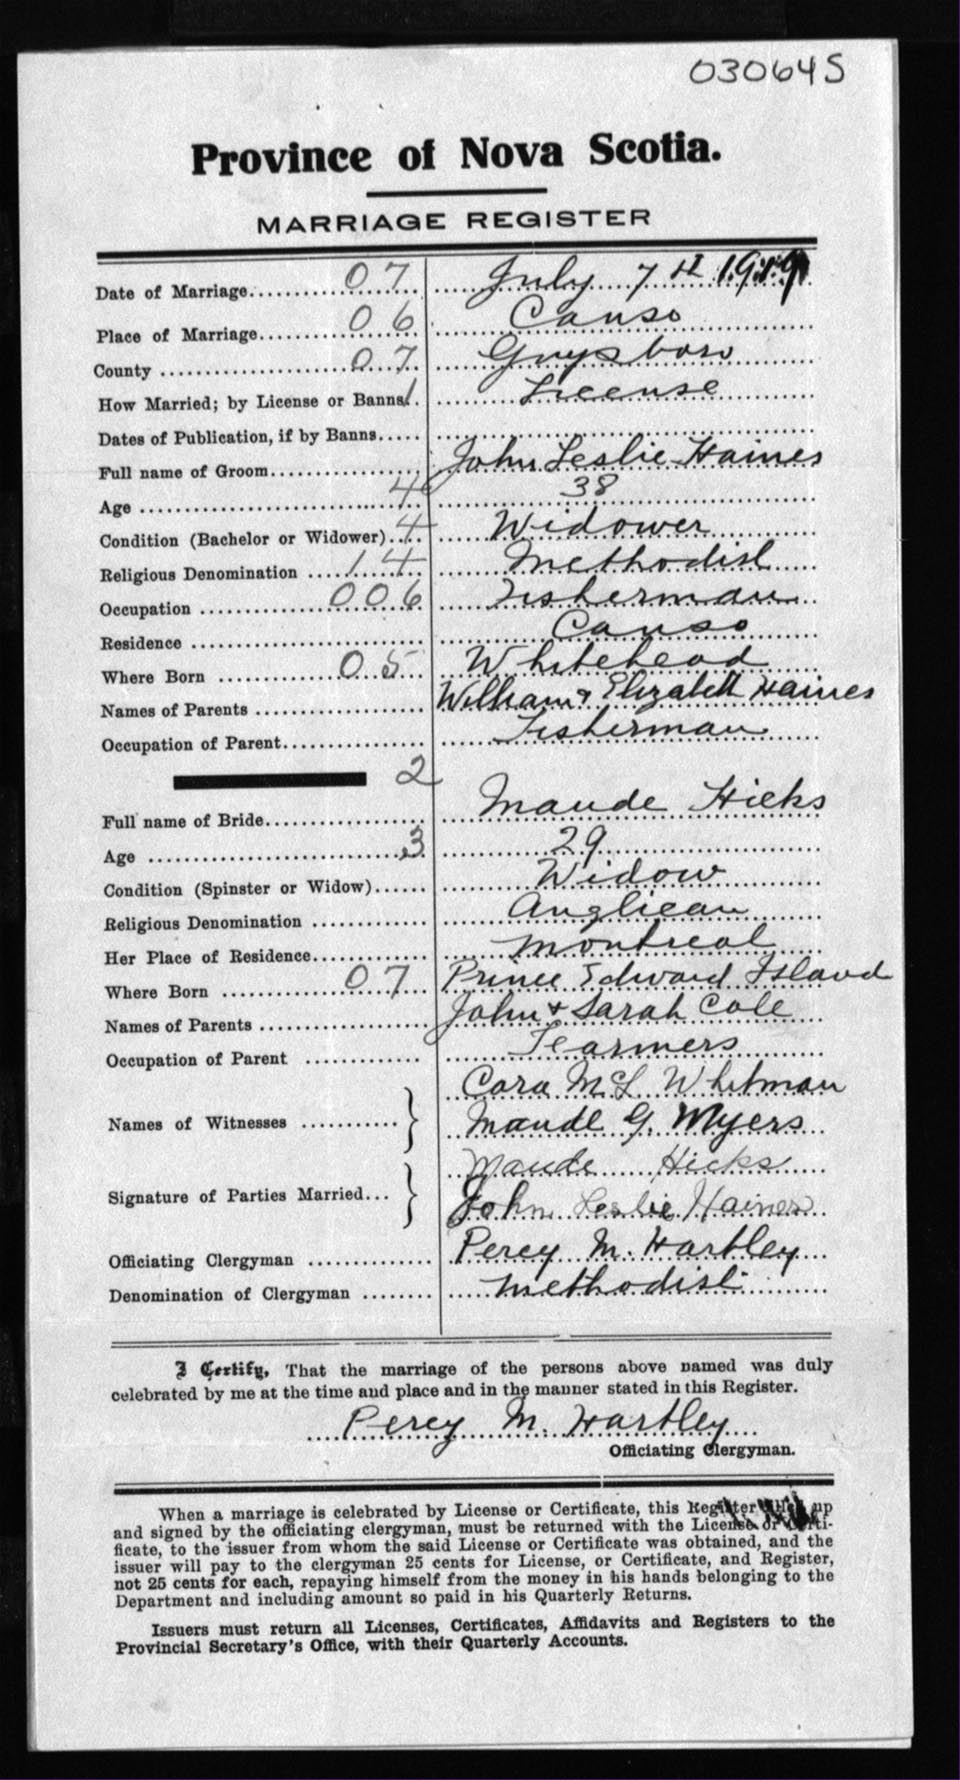 030645
Province of Nova Scotia.
MARRIAGE REGISTER
Date of Marriage 07 July 7th 1919
Place of Marriage 06 Canso
County 07 Guysboro
How Married; by License or Banns 1 License
Dates of Publication, if by Banns
Full name of Groom John Leslie Haines
Age 4 38
Condition (Bachelor or Widower) 4 Widower
Religious Denomination 14 Methodist
Occupation 006 Fisherman
Residence Canso
Where Born 05 Whitehead
Names of Parents William & Elizabeth Haines
Occupation of Parent Fisherman
2
Full name of Bride Maude Hicks
Age 3 29
Condition (Spinster or Widow) Widow
Religious Denomination Anglican
Her Place of Residence Montreal
Where Born 07 Prince Edward Island
Names of Parents John & Sarah Cole
Occupation of Parent Fearmers
Cora McL Whitman
Names of Witnesses Maude G. Myers
Maude Hicks
Signature of Parties Married John Leslie Haines
Officiating Clergyman Percy M. Hartley
Denomination of Clergyman Methodist
I Certify, That the marriage of the persons above named was duly
celebrated by me at the time and place and in the manner stated in this Register.
Percy M. Hartley
Officiating Clergyman.
When a marriage is celebrated by License or Certificate, this Register filled up
and signed by the officiating clergyman, must be returned with the License or Certi-
ficate, to the issuer from whom the said License or Certificate was obtained, and the
issuer will pay to the clergyman 25 cents for License, or Certificate, and Register,
not 25 cents for each, repaying himself from the money in his hands belonging to the
Department and including amount so paid in his Quarterly Returns.
Issuers must return all Licenses, Certificates, Affidavits and Registers to the
Provincial Secretary's Office, with their Quarterly Accounts.